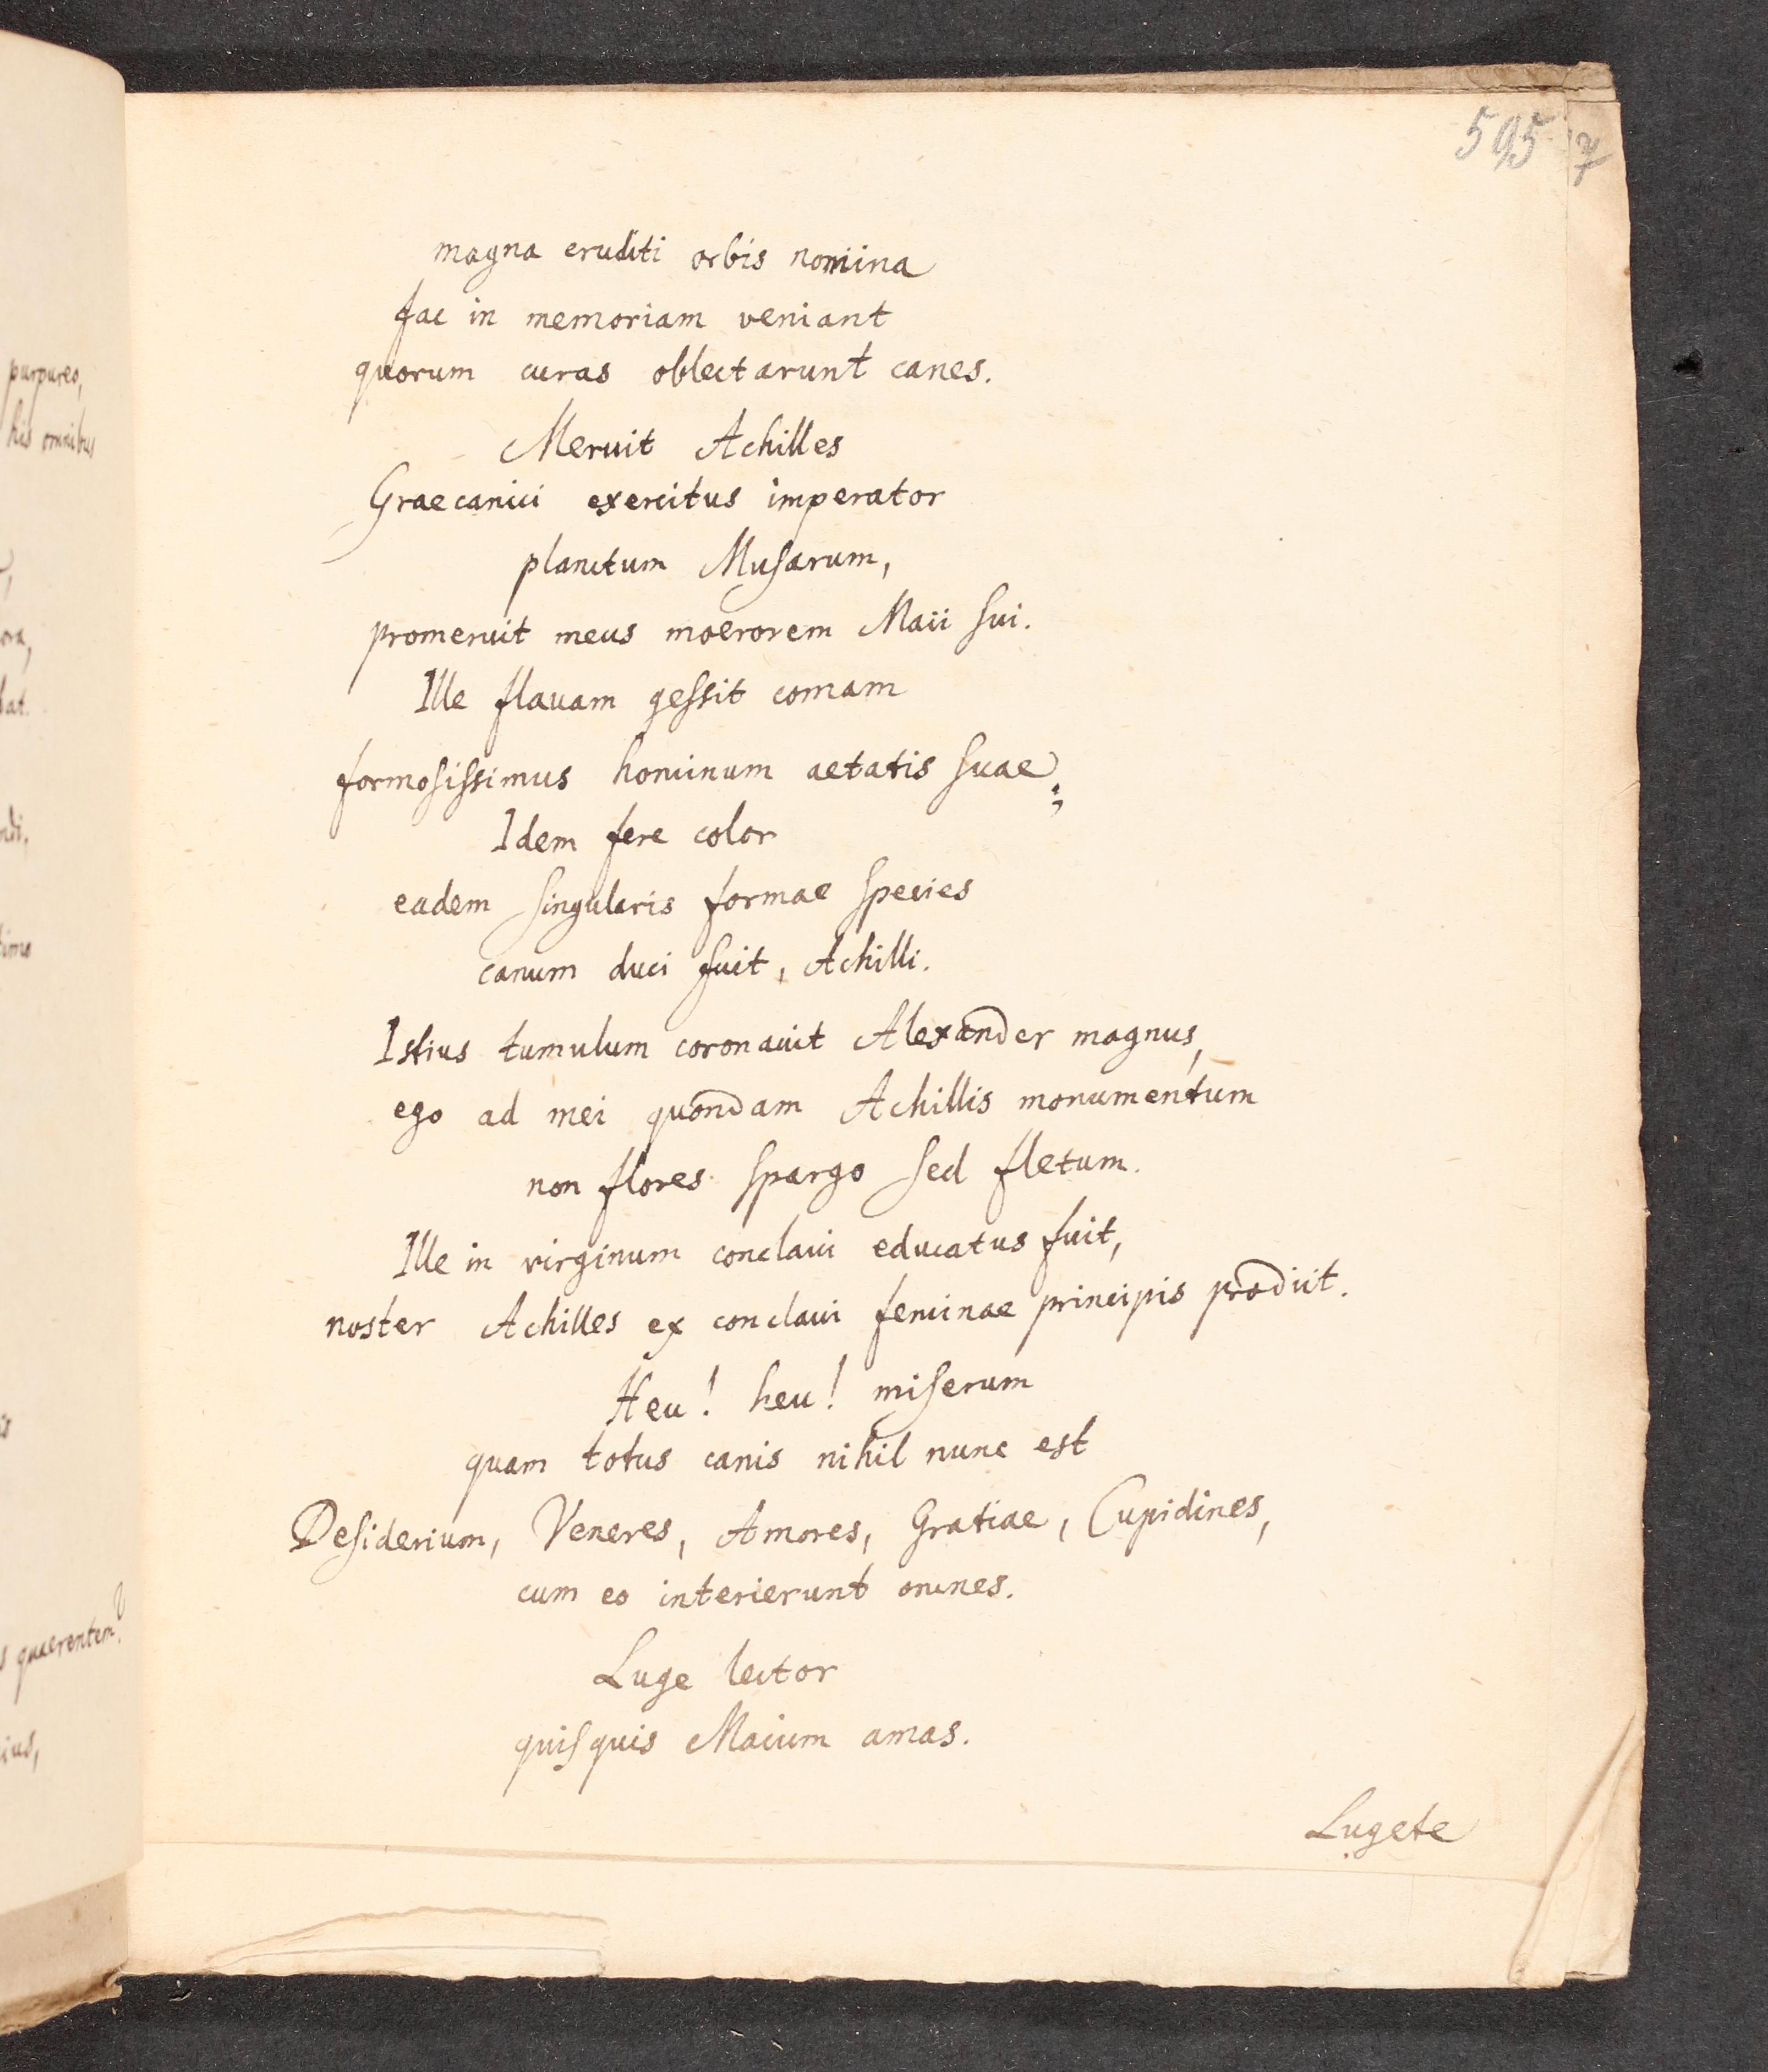 purpureo,
his omnibus
595
7
magna eruditi orbis nomina
fac in memoriam veniant
quorum curas oblectarunt canes.
Meruit Achilles
Graecanici exercitus imperator
planctum Musarum,
promeruit meus moerorem Maii sui.
Ille flavam gessit comam
formosissimus hominum aetatis suae;
Idem fere color
eadem singularis formae species
canum duci fuit, Achilli.
Istius tumulum coronavit Alexander magnus,
ego ad mei quondam Achillis monumentum
non flores spargo sed fletum.
Ille in virginum conclavi educatus fuit,
noster Achilles ex conclavi feminae principis prodiit.
Heu! heu! miserum
quam totus canis nihil nunc est
Desiderium, Veneres, Amores, Gratiae, Cupidines,
cum eo interierunt omnes.
s quaerentem?
Luge lector
quisquis Maium amas.
Lugete